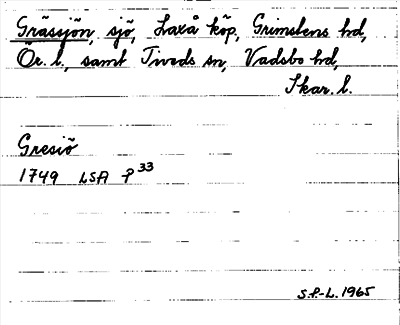 Grässjön, sjö, Laxå köp, Grimstens hd,
Ör. l., samt Tiveds sn, Vadsbo hd,
Skar. l.
Gresiö
1749 LSA P 33
S.P.-L. 1965